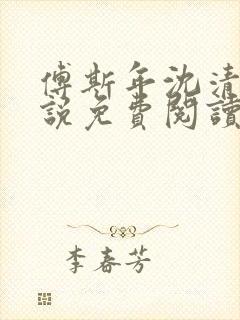 傅斯年沈清
說免費閱讀
李春芳